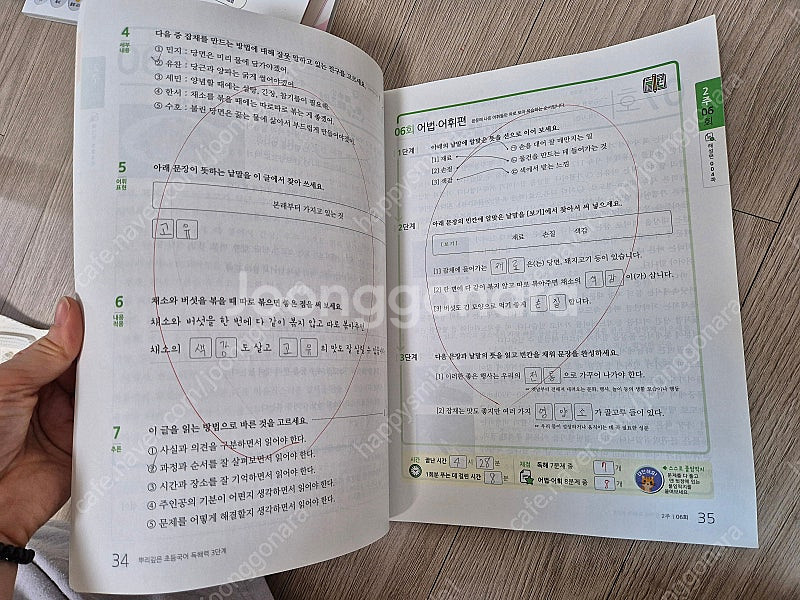 4
세부
내용
다음 중 잡채를 만드는 방법에 대해 잘못 말하고 있는 친구를 고르세요.
① 민지 : 당면은 미리 물에 담가야겠어.
② 유찬 : 당근과 양파는 굵게 썰어야겠어.
③ 세민 : 양념할 때에는 설탕, 간장, 참기름이 필요해.
④ 한서 : 채소를 볶을 때는 따로따로 볶는 게 좋겠어.
⑤ 수호 : 불린 당면은 끓는 물에 삶아서 부드럽게 만들어야겠어.
5
어휘
표현
아래 문장이 뜻하는 낱말을 이 글에서 찾아 쓰세요.
본래부터 가지고 있는 것
고 유
6
내용
적용
채소와 버섯을 볶을 때 따로 볶으면 좋은 점을 써 보세요.
채소와 버섯을 한 번에 다 같이 볶지 않고 따로 볶아주면
채소의 색 감 도 살고 고 유 의 맛도 잘 살릴 수
7
추론
이 글을 읽는 방법으로 바른 것을 고르세요.
① 사실과 의견을 구분하면서 읽어야 한다.
② 과정과 순서를 잘 살펴보면서 읽어야 한다.
③ 시간과 장소를 잘 기억하면서 읽어야 한다.
④ 주인공의 기분이 어떤지 생각하면서 읽어야 한다.
⑤ 문제를 어떻게 해결할지 생각하면서 읽어야 한다.
34 뿌리깊은 초등국어 독해력 3단계
06회 어법·어휘편
1단계
아래의 낱말에 알맞은 뜻을 선으로 이어 보세요.
[1] 재료 ㉠ 손을 대어 잘 매만지는 일
[2] 손질 ㉡ 물건을 만드는 데 들어가는 것
[3] 색감 ㉢ 색에서 받는 느낌
2단계
아래 문장의 빈칸에 알맞은 낱말을 [보기]에서 찾아서 써 넣으세요.
[보기] 재료 손질 색감
[1] 잡채에 들어가는 재 료 은(는) 당면, 돼지고기 등이 있습니다.
[2] 한 번에 다 같이 볶지 않고 따로 볶아주면 채소의 색 감 이(가) 삽니다.
[3] 버섯도 긴 모양으로 먹기 좋게 손 질 합니다.
3단계
다음 문장과 낱말의 뜻을 읽고 빈칸을 채워 문장을 완성하세요.
[1] 이러한 좋은 행사는 우리의 전 통 으로 가꾸어 나가야 한다.
[2] 잡채는 맛도 좋지만 여러 가지 영 양 소 가 골고루 들어 있다.
시간 끝난 시간 4 시 28 분
1회분 푸는 데 걸린 시간 8 분
채점 독해 7문제 중 7 개
어법·어휘 8문제 중 8 개
스스로 붙임딱지
문제를 다 풀고
맨 뒷장에 있는
붙임딱지를
붙여보세요.
2주
06
회
2주 | 06회 35
loonggonara
cafe.naver.com/loonggonara